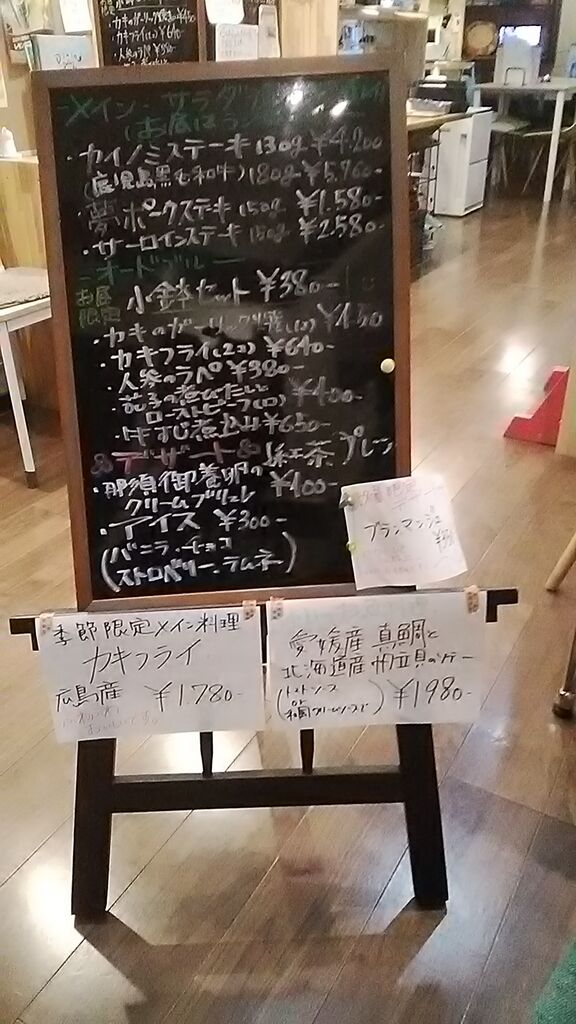 カキのガーリック
カキフライ(2コ) ¥640-
人参のラペ
-メイン・サラダ
(お昼は
・カイノミステーキ 130g ¥4.200
(鹿児島黒毛和牛) 180g ¥5.760
・夢ポークステーキ 150g ¥1.580
・サーロインステーキ 150g ¥2.580
-オードブル-
お昼限定 小鉢セット ¥380-
・カキのガーリック
・カキフライ(2コ) ¥640-
・人参のラペ ¥380-
・茄子の煮びたしと
ローストビーフ ¥400-
・牛すじ煮込み ¥650-
&デザート&
・那須御養卵の
クリームブリュレ ¥400-
紅茶 プレーン
・アイス ¥300-
(バニラ・チョコ
ストロベリー・ラムネ)
ブランマンジェ
季節限定メイン料理
カキフライ
広島産 ¥1.780-
愛媛産 真鯛と
北海道産 帆立貝のソテー
(トマトソース
or
和風クリームソース) ¥1980-